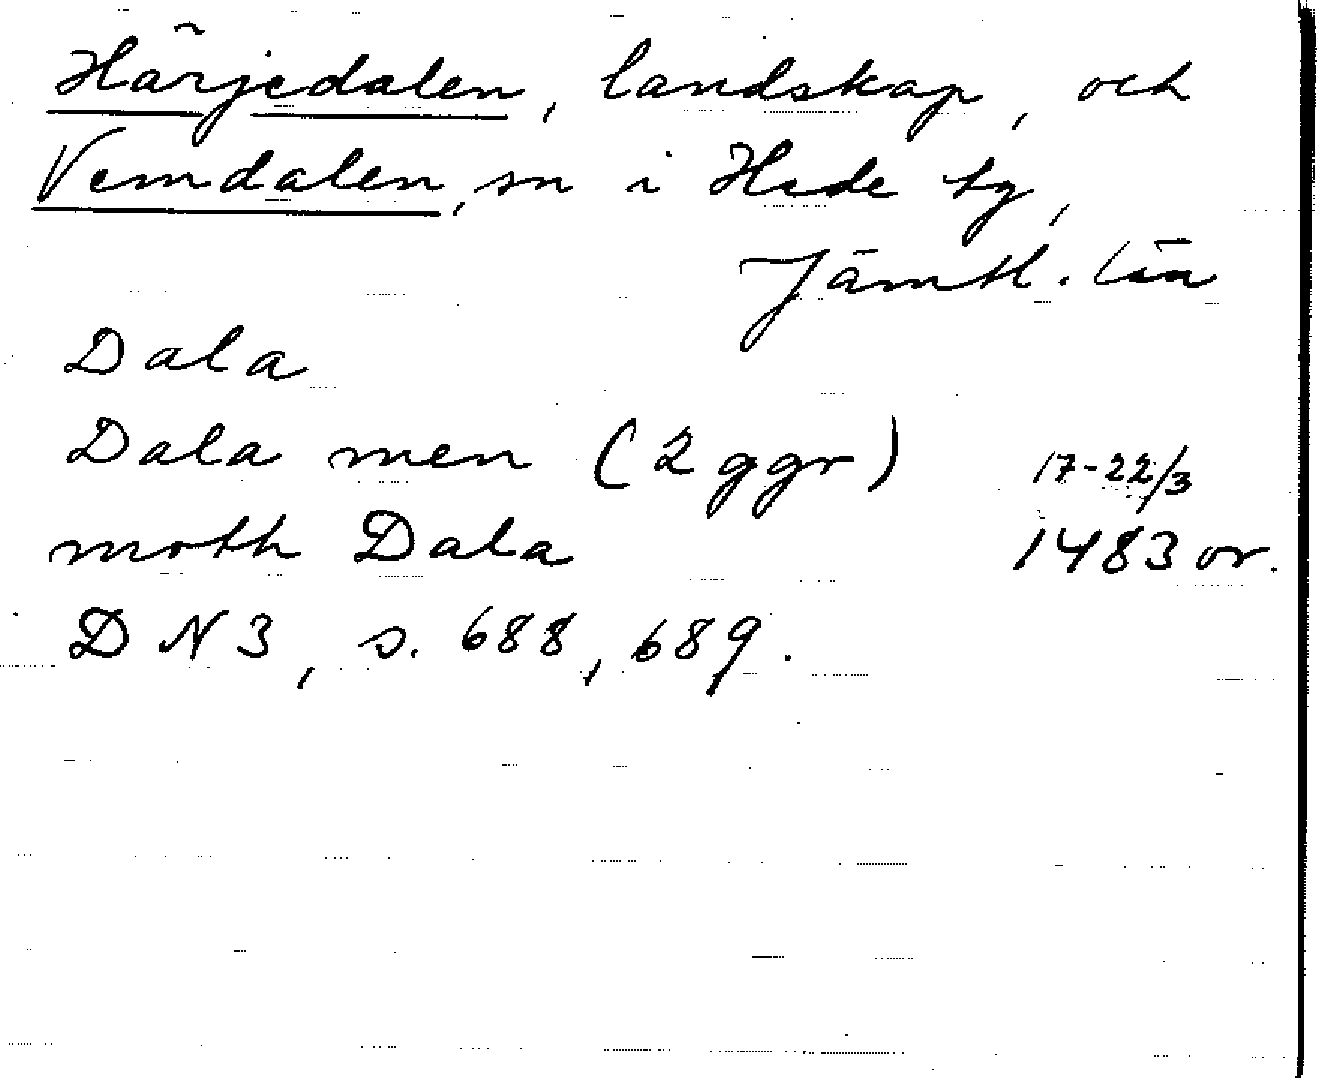 Härjedalen, landskap, och
Vemdalen, sn i Hede tg,
Jämtl. län
Dala
Dala men (2 ggr) 17-22/3
moth Dala 1483 or.
DN 3, s. 688, 689.